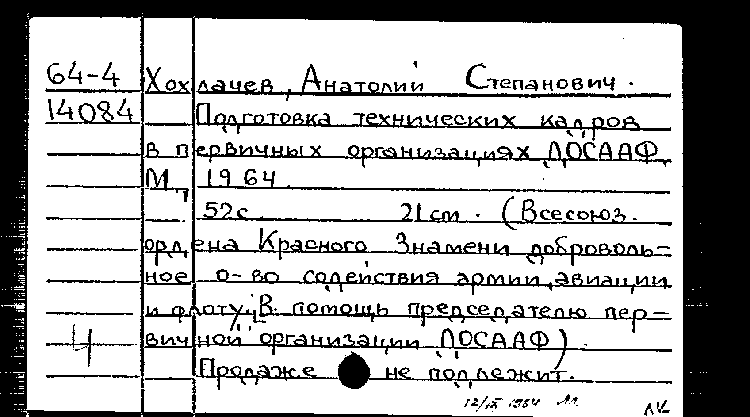 64-4 Хохлачев, Анатолий Степанович.
14084 Подготовка технических кадров
в первичных организациях ДОСААФ
М., 1964.
52с. 21 см. (Всесоюз.
ордена Красного Знамени доброволь=
ное о-во содействия армии, авиации
и флоту. В помощь председателю пер=
4 вичной организации ДОСААФ)
Продаже не подлежит.